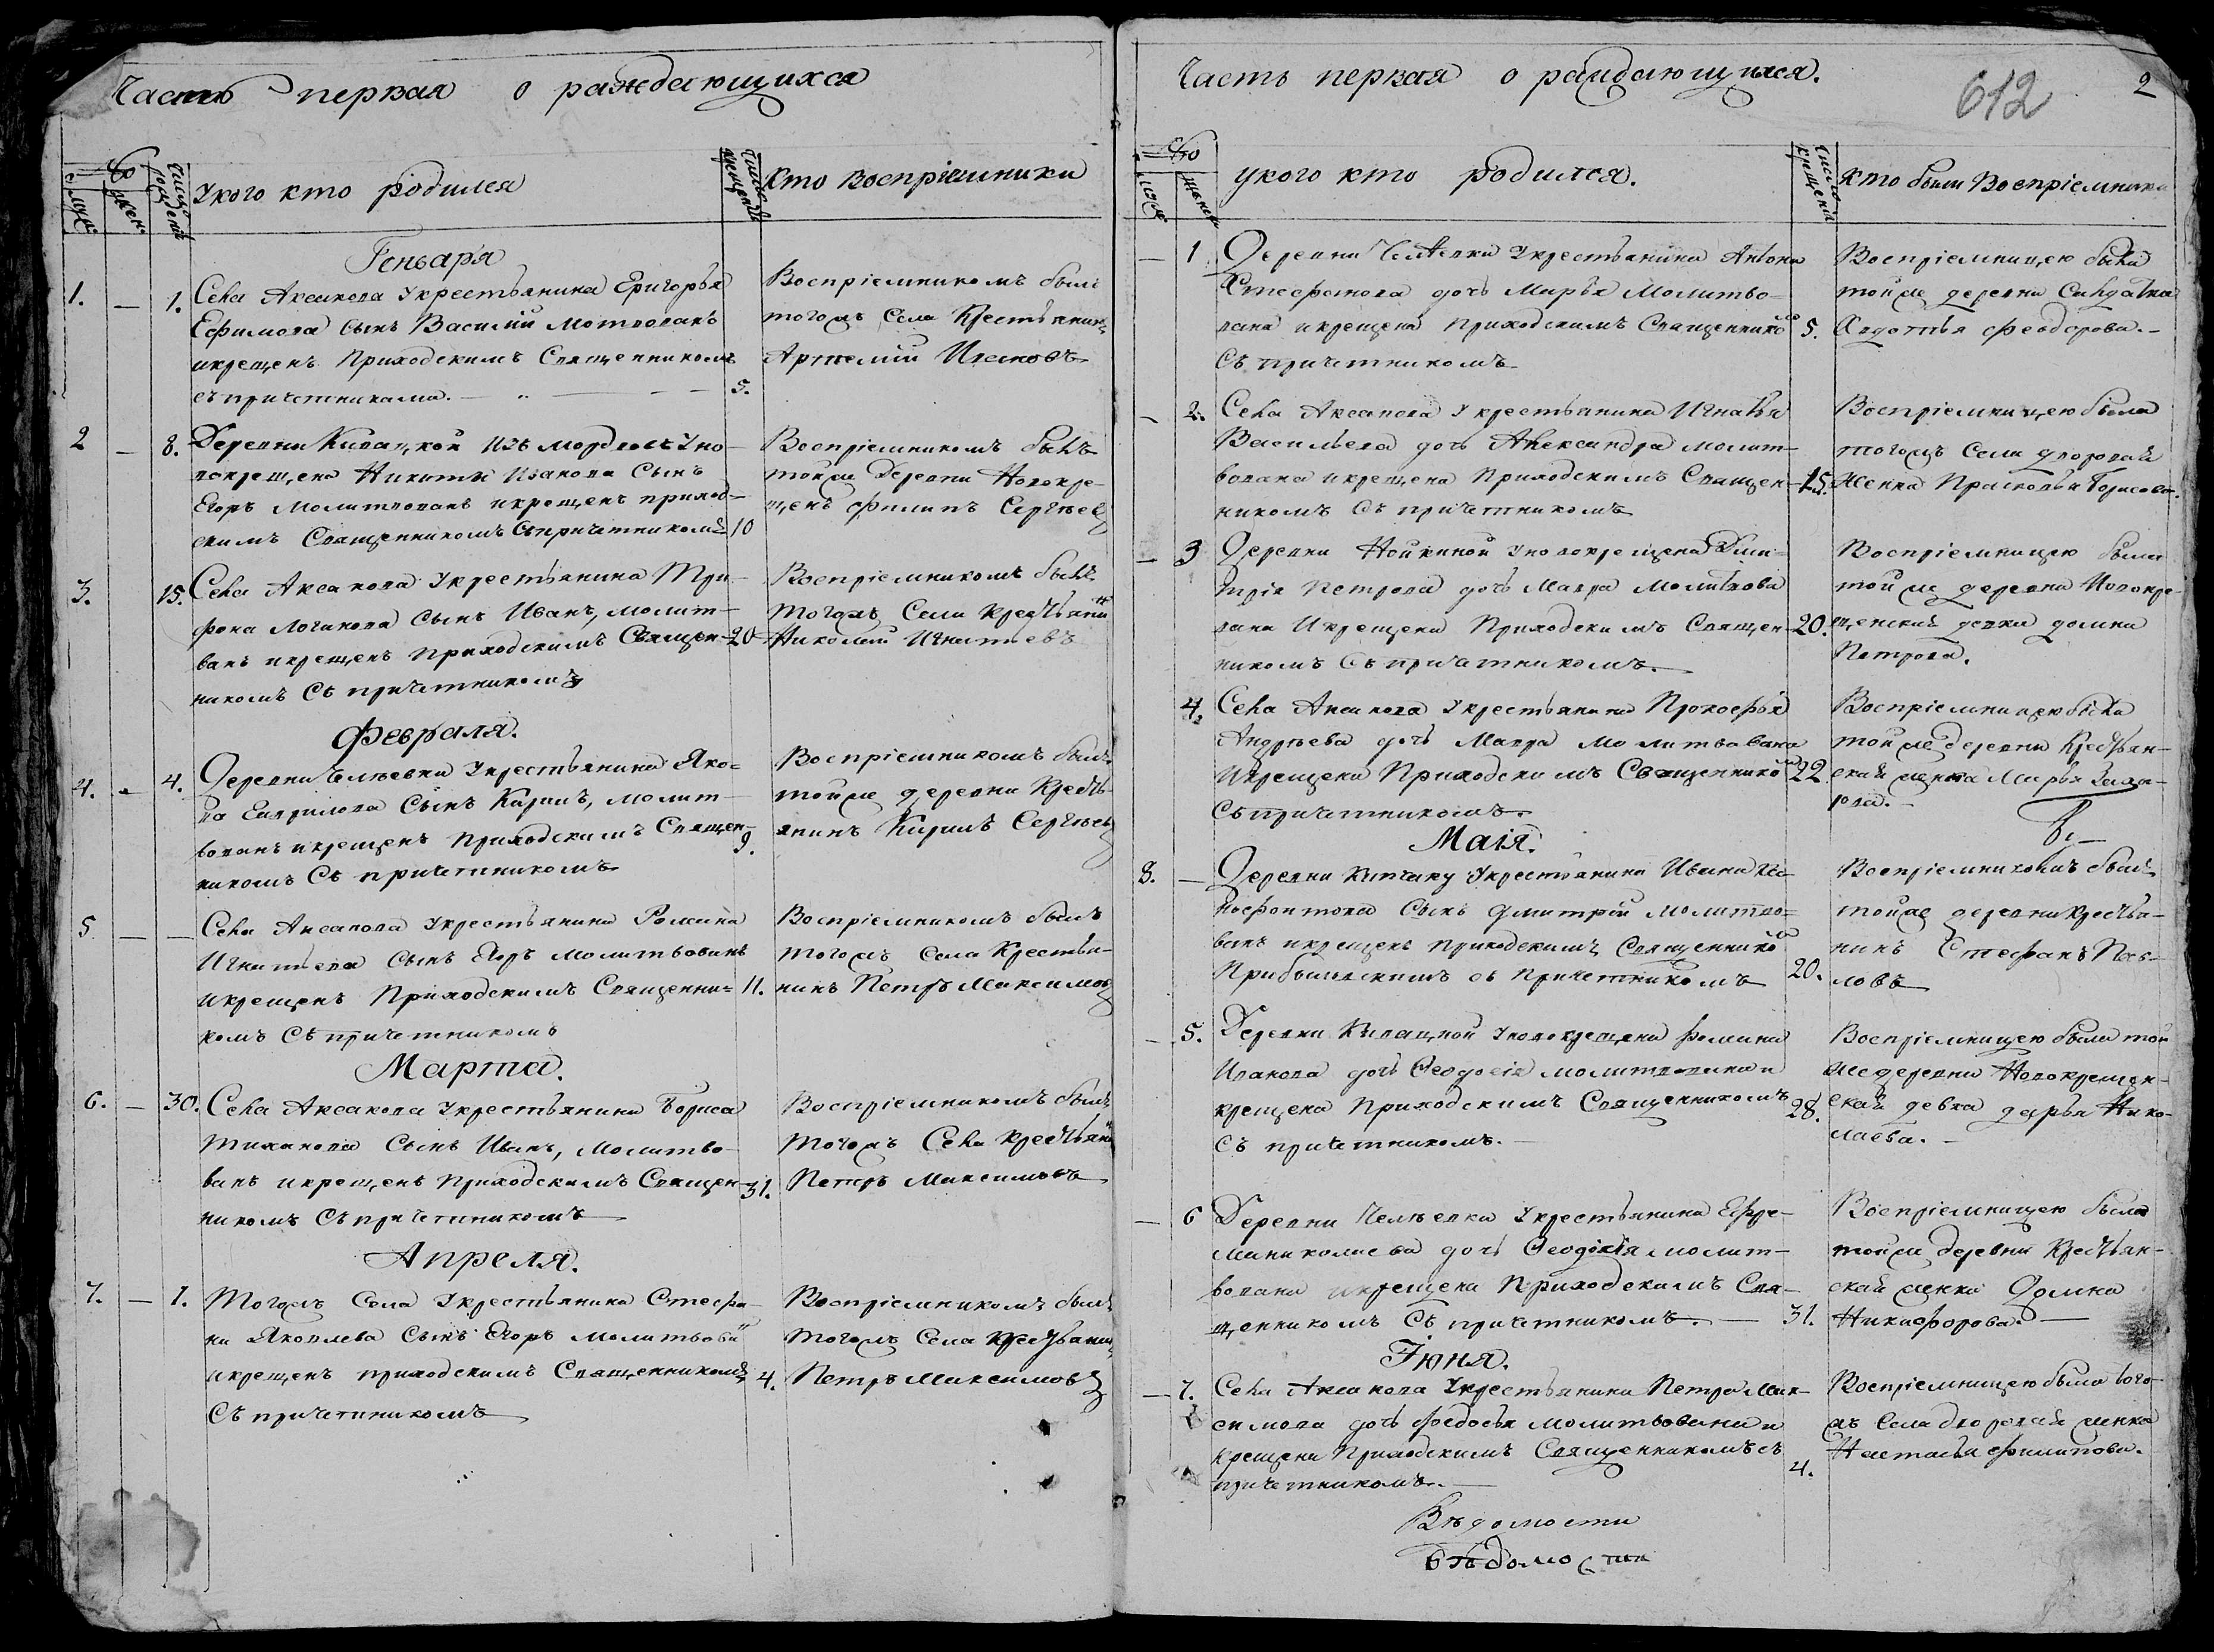 Часть первая о раждающихся
Число рожденій
Число крещенія
у кого кто родился
кто воспріемники
Генваря
1. — 1. Села Аксакова у крестьянина Григорья
Ефимова сынъ Василий молтвованъ
и крещенъ приходскимъ Священникомъ
съ причетниками. — 5.
Воспріемникомъ былъ
тогожъ села крестьянинъ
Артемий
2 — 8. Деревни из мордвы у но-
вокрещена Никиты Ивакова сынъ
Егоръ молитвованъ и крещенъ приход-
скимъ Священникомъ съ причетникомъ 10
Воспріемникомъ былъ
тойже деревни Новокре-
щенъ Филипъ Сергѣевъ
3. 15. Села Аксакова у крестьянина Три-
фона Логинова сынъ Иванъ, молит-
ванъ и крещенъ приходскимъ Священ- 20
никомъ съ причетникомъ
Воспріемникомъ былъ
тогожъ села крестьянинъ
Николай Игнатьевъ
Февраля.
4. — 4. Деревни Челѣевки у крестьянина Яко-
ва Гаврилова сынъ Кирилъ, молит-
вованъ и крещенъ приходскимъ Священ- 9.
никомъ съ причетникомъ
Воспріемникомъ былъ
тойже деревни кресть-
янинъ Кирилъ Сергѣевъ
5 — — Села Аксакова у крестьянина Романа
Игнатьева сынъ Егоръ молитвованъ
и крещенъ приходскимъ Священни- 11.
комъ съ причетникомъ
Воспріемникомъ былъ
тогожъ села крестья-
нинъ Петръ Максимовъ
Марта.
6. — 30. Села Аксакова у крестьянина Бориса
Тиханова сынъ Иванъ, молитво-
ванъ и крещенъ приходскимъ Священ- 31.
никомъ съ причетникомъ
Воспріемникомъ былъ
тогожъ села крестьянинъ
Петръ Максимовъ
Апреля.
7. — 1. Тогожъ села у крестьянина Стефа-
на Яковлева сынъ Егоръ молитвованъ
и крещенъ приходскимъ Священникомъ 4.
съ причетникомъ
Воспріемникомъ былъ
тогожъ села крестьянинъ
Петръ Максимовъ
Часть первая о раждающихся.
612
2
у кого кто родился.
кто были воспріемники
— 1 Деревни Челѣевки у крестьянина Антона
Стефанова дочь Марья молитво-
вана и крещена приходскимъ Священникомъ 5.
съ причетникомъ
Воспріемницею была
тойже деревни салдатка
Авдотья Феодорова. —
— 2. Села Аксакова у крестьянина Игнатья
Васильева дочь Александра молит-
вована и крещена приходскимъ Священ- 15.
никомъ съ причетникомъ
Воспріемницею была
тогожъ села дворовая
женка Прасковья Борисова.
— 3 Деревни у новокрещена Дми-
трія Петрова дочь Мавра молитвова
вана и крещена приходскимъ Священ- 20.
никомъ съ причетникомъ.
Воспріемницею была
тойже деревни новокре-
щенская девка домна
Петрова.
4. Села Аксакова у крестьянина Прокофья
Андрѣева дочь Мавра молитвована
и крещена приходскимъ Священникомъ 22
съ причетникомъ.
Воспріемницею была
тойже деревни крестьян-
ская женка Марья Заха-
рова. —
Маія.
8. — Деревни Кипчаку у крестьянина Ивана Кс-
нофонтова сынъ дмитрій молитво-
ванъ и крещенъ приходскимъ Священникомъ
Прибыловскимъ съ причетникомъ 20.
Воспріемникомъ былъ
тойже деревни крестья-
нинъ Стефанъ Пав-
ловъ
— 5. Деревни у новокрещена Романа
Ивакова дочь Феодосія молитвована и
крещена приходскимъ Священникомъ 28.
съ причетникомъ. —
Воспріемницею была той
же деревни новокрещен-
ская девка дарья Нико-
лаева. —
— 6 Деревни Челѣевки у крестьянина Ефре-
ма николаева дочь Феодосія молит-
вована и крещена приходскимъ Свя-
щенникомъ съ причетникомъ. — 31.
Воспріемницею была
тойже деревни крестьян-
ская женка Домна
Никифорова. —
Іюня.
— 7. Села Аксакова у крестьянина Петра Мак-
симова дочь Федосья молитвована и
крещена приходскимъ Священникомъ съ 4.
причетникомъ. —
Воспріемницею была того-
жъ села дворовая женка
Настасья Филипова.
Вѣдомости
вѣдомости